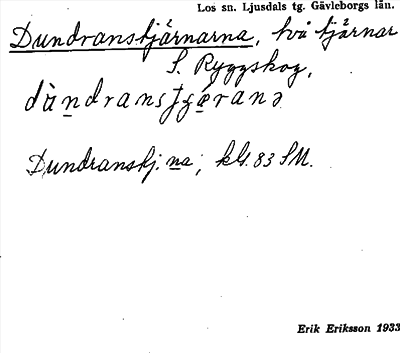 Los sn. Ljusdals tg. Gävleborgs län.
Dundranstjärnarna, två tjärnar
S. Ryggskog,
Dundranstj. na; kbl. 83 SM.
Erik Eriksson 1933